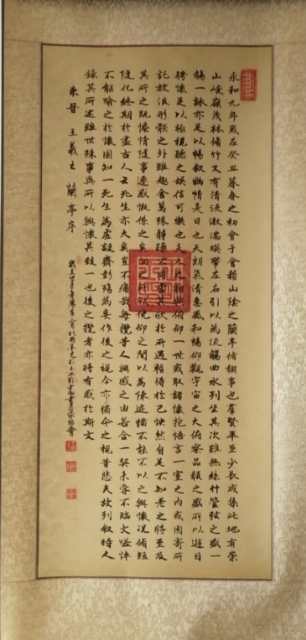 永和九年歲在癸丑暮春之初會于會稽山陰之蘭亭脩禊事也群賢畢至少長咸集此地有崇
山峻嶺茂林脩竹又有清流激湍暎帶左右引以為流觴曲水列坐其次雖無絲竹管弦之盛一
觴一詠亦足以暢敘幽情是日也天朗氣清惠風和暢仰觀宇宙之大俯察品類之盛所以遊目
騁懷足以極視聽之娛信可樂也夫人之相與俯仰一世或取諸懷抱悟言一室之內或因寄所
託放浪形骸之外雖趣舍萬殊靜躁不同當其欣於所遇暫得於己快然自足不知老之將至及
其所之既惓情隨事遷感慨係之矣向之所欣俛仰之間以為陳迹猶不能不以之興懷況脩短
隨化終期於盡古人云死生亦大矣豈不痛哉每攬昔人興感之由若合一契未嘗不臨文嗟悼
不能喻之於懷固知一死生為虛誕齊彭殤為妄作後之視今亦由今之視昔悲夫故列敘時人
錄其所述雖世殊事異所以興懷其致一也後之攬者亦將有感於斯文
東晉 王羲之 蘭亭序